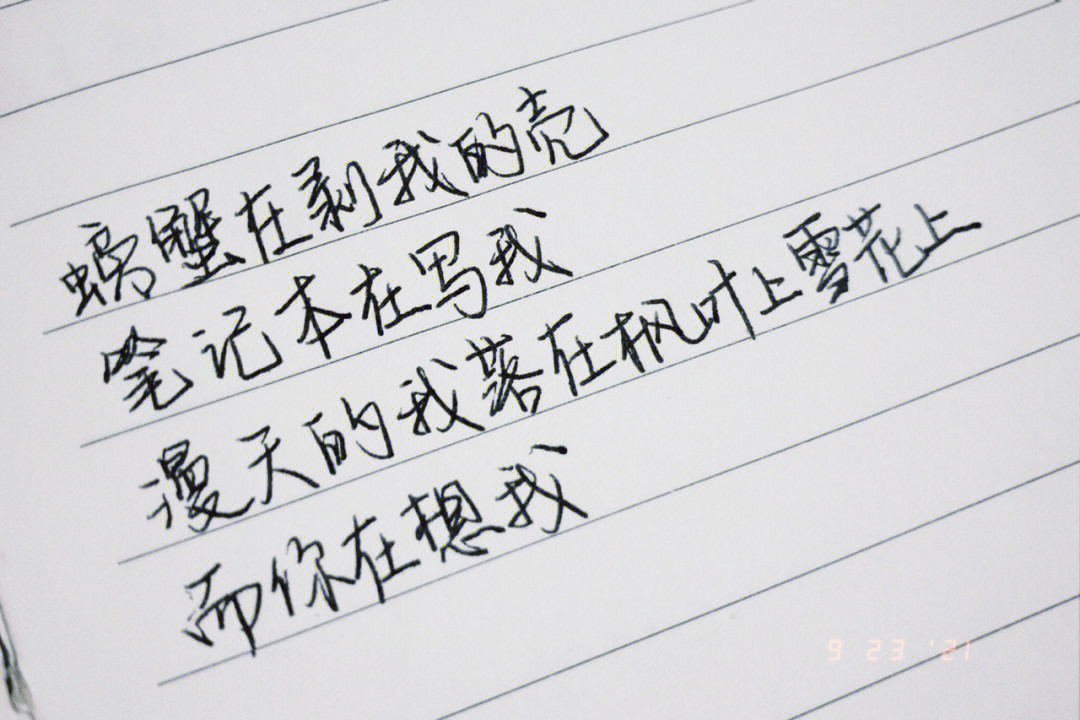 螃蟹在剥我的壳
笔记本在写我
漫天的我落在枫叶上雪花上
而你在想我
9 23 '21